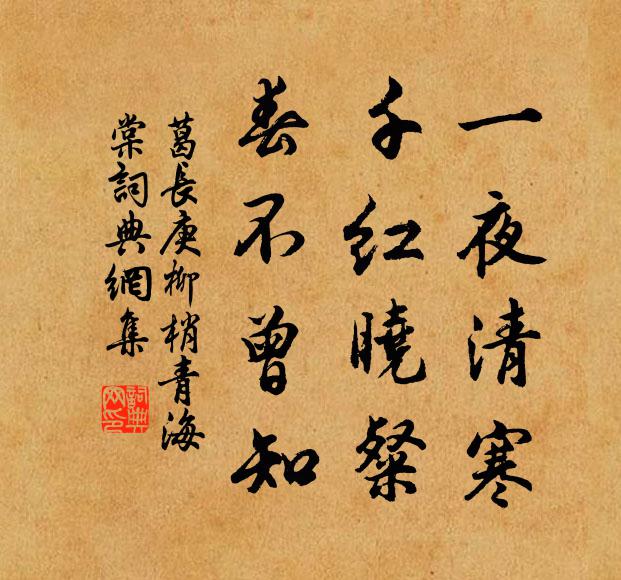 一夜清寒
千紅曉粲
春不曾知
葛長庚柳梢青海
棠詞典網集
詞典
网印